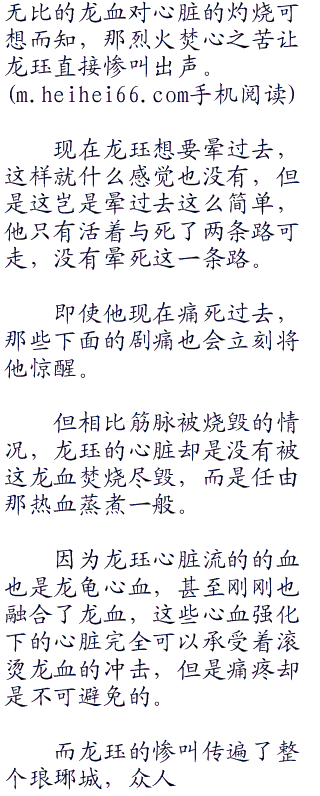 无比的龙血对心脏的灼烧可
想而知，那烈火焚心之苦让
龙珏直接惨叫出声。
(m.heihei66.com手机阅读)
现在龙珏想要晕过去，
这样就什么感觉也没有，但
是这岂是晕过去这么简单，
他只有活着与死了两条路可
走，没有晕死这一条路。
即使他现在痛死过去，
那些下面的剧痛也会立刻将
他惊醒。
但相比筋脉被烧毁的情
况，龙珏的心脏却是没有被
这龙血焚烧尽毁，而是任由
那热血蒸煮一般。
因为龙珏心脏流的的血
也是龙龟心血，甚至刚刚也
融合了龙血，这些心血强化
下的心脏完全可以承受着滚
烫龙血的冲击，但是痛疼却
是不可避免的。
而龙珏的惨叫传遍了整
个琅琊城，众人